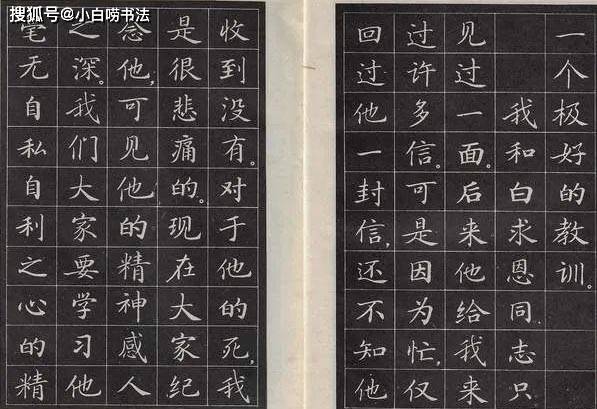 搜狐号@小白唠书法
一个极好的教训。
我和白求恩同志只
见过一面。后来他给我来
过许多信。可是因为忙，仅
回过他一封信，还不知他
收到没有。对于他的死，我
是很悲痛的。现在大家纪
念他，可见他的精神感人
之深。我们大家要学习他
毫无自私自利之心的精